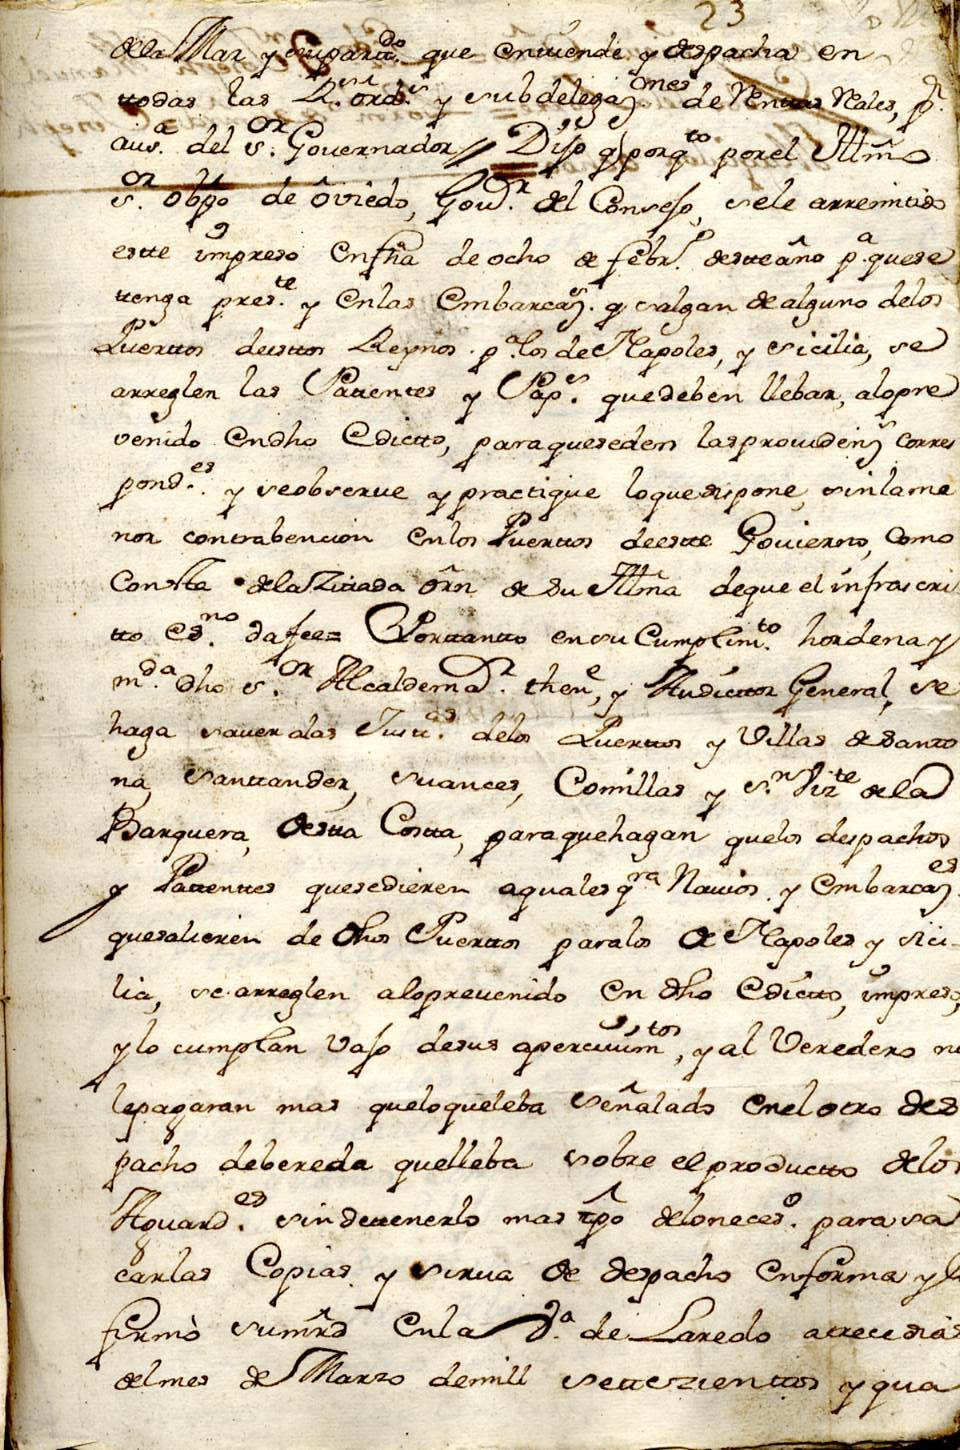 23
dela Mar y su partᵈᵒ. que entiende y despacha en
ttodas las R.ˢ ordˢ. y subdelegaz.ᵒⁿᵉˢ de Renttas Reales, pʳ.
aus.ᵃ del s.ᵒʳ Governador // Dijo q̃ porq.ᵗᵒ por el Illm̃o
s.ᵒʳ obpo de oviedo, Gov.ᵒʳ del Consejo, sele a rremitido
estte impreso en fha de ocho de febr.ᵒ destte año p.ᵃ quese
ttenga pres.ᵗᵉ y en las embarcaz.ˢ q̃ salgan de alguno delos
Puerttos desttos Reynos p.ᵃ los de Napoles, y sicilia, se
arreglen las Pattentes y Pap.ˢ que deben llebar, alopre
venido en dho Edictto, para quese den las providenz.ˢ corres
pond.ᵉˢ y se observe y practique lo que dispone, sin la me
nor contrabencion en los Puerttos de estte Govierno, como
Constta dela Zittada orn de su Illm̃a de que el infrascri
tto es.ⁿᵒ da fee= Porttantto en su Cumplim.ᵗᵒ hordena y
m.ᵈᵃ dho s.ᵒʳ Alcalde mayᵒʳ. thenᵉ, y Audictor General, se
haga saver alas Justt.ᵃˢ delos Puerttos y Villas de santo
na, Santtander, suances, Comillas y s.ⁿ Vizᵗᵉ dela
Barquera, destta Costta, para que hagan quelos despachos
y Pattenttes quese dieren a qualesq.ʳᵃ Navios y embarcaz.ᵉˢ
que salieren de dhos Puerttos para los de Napoles y sici-
lia, se arreglen alo prevenido en dho Edictto, impreso,
y lo cumplan vajo desus apercivim.ᵗᵒˢ, y al Veredero no
le pagaran mas quelo que leba señalado en el otro des
pacho de bereda que lleba sobre el productto delos
Aguard.ᵉˢ sin dettenerlo mas tp̃o delo neces.ᵒ para sa
car las Copias y sirva de despacho en forma y lo
firmò sumr̃d en la V.ᵃ de Laredo a trece dias
del mes de Marzo demill settezienttos y qua